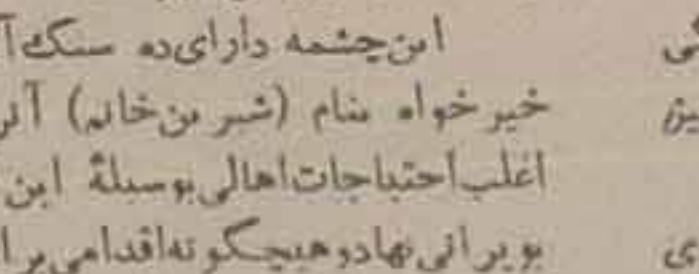 این چشمه دارای ده سنگ آ
خیر خواه بنام (شیرین خانم) آنر
اغلب احتیاجات اهالی بوسیلهٔ این
بویرانی نهاد و هیچگونه اقدامی برا